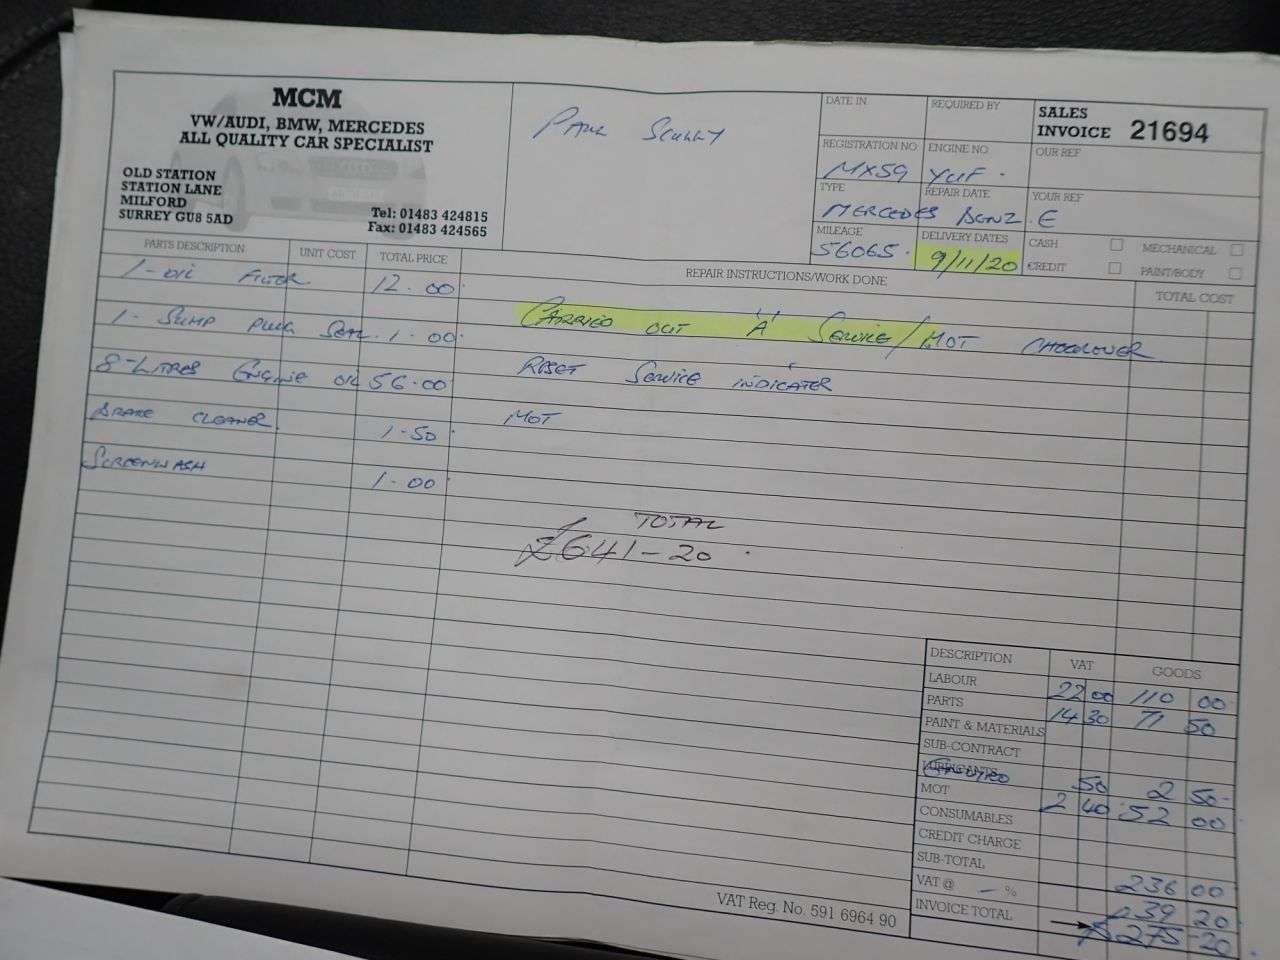 MCM
VW/AUDI, BMW, MERCEDES
ALL QUALITY CAR SPECIALIST
OLD STATION
STATION LANE
MILFORD
SURREY GU8 5AD
Tel: 01483 424815
Fax: 01483 424565
PAUL SCULLY
DATE IN
REQUIRED BY
SALES INVOICE 21694
REGISTRATION NO MX59
ENGINE NO YUF.
OUR REF
TYPE
REPAIR DATE
MERCEDES BENZ. E
YOUR REF
MILEAGE 56065.
DELIVERY DATES 9/11/20
CASH
MECHANICAL
CREDIT
PAINT/BODY
PARTS DESCRIPTION UNIT COST TOTAL PRICE REPAIR INSTRUCTIONS/WORK DONE TOTAL COST
1-OIL FILTER. 12.00
1-SUMP PLUG SEAL. 1.00
8-LITRES ENGINE OIL 56.00
BRAKE CLEANER 1-50
SCREENWASH 1-00
CARRIED OUT "A" SERVICE/MOT CHECKOVER
RESET SERVICE INDICATER
MOT
TOTAL
£641-20.
DESCRIPTION VAT GOODS
LABOUR 22 00 110 00
PARTS 14 30 71 50
PAINT & MATERIALS
SUB-CONTRACT
LUBRICANTS 50 2 50-
MOT 2 40 52 00
CONSUMABLES
CREDIT CHARGE
SUB-TOTAL 236 00
VAT @ - % 39 20
INVOICE TOTAL £ 275-20
VAT Reg. No. 591 6964 90